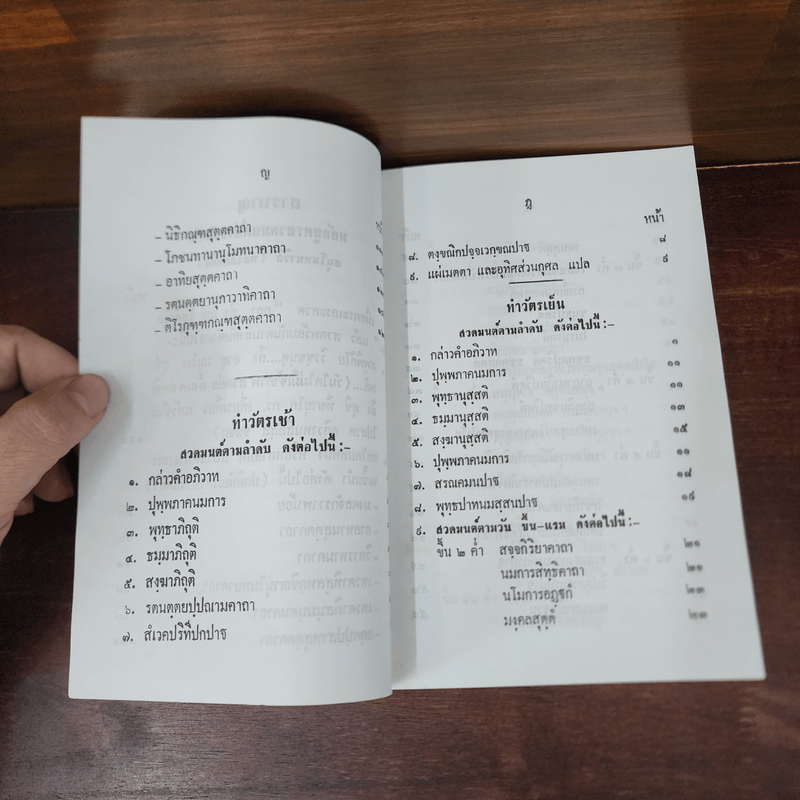 ญ
– นิธิกณฺฑสุตฺตคาถา
– โภชนทานานุโมทนาคาถา
– อาทิยสุตฺตคาถา
– รตนตฺตยานุภาวาทิคาถา
– ติโรกุฑฺฑกณฺฑสุตฺตคาถา
ทำวัตรเช้า
สวดมนต์ตามลำดับ ดังต่อไปนี้ :–
๑. กล่าวคำอภิวาท
๒. ปุพฺพภาคนมการ
๓. พุทฺธาภิถุติ
๔. ธมฺมาภิถุติ
๕. สงฺฆาภิถุติ
๖. รตนตฺตยปฺปณามคาถา
๗. สํเวคปริทีปกปาฐ
ฎ
หน้า
๘. ตงฺขณิกปจฺจเวกฺขณปาฐ ๘
๙. แผ่เมตตา และอุทิศส่วนกุศล แปล ๙
ทำวัตรเย็น
สวดมนต์ตามลำดับ ดังต่อไปนี้ :–
๑. กล่าวคำอภิวาท ๑
๒. ปุพฺพภาคนมการ ๑๑
๓. พุทฺธานุสฺสติ ๑๑
๔. ธมฺมานุสฺสติ ๑๓
๕. สงฺฆานุสฺสติ ๑๕
๖. ปุพฺพภาคนมการ
๗. สรณคมนปาฐ ๑๘
๘. พุทฺธปาทนมสฺสนปาฐ ๑๙
๙. สวดมนต์ตามวัน ขึ้น–แรม ดังต่อไปนี้ :–
ขึ้น ๒ ค่ำ สจฺจกิริยาคาถา ๒๑
นมการสิทฺธิคาถา ๒๑
นโมการอฏฺฐกํ ๒๓
มงฺคลสุตฺตํ ๒๓